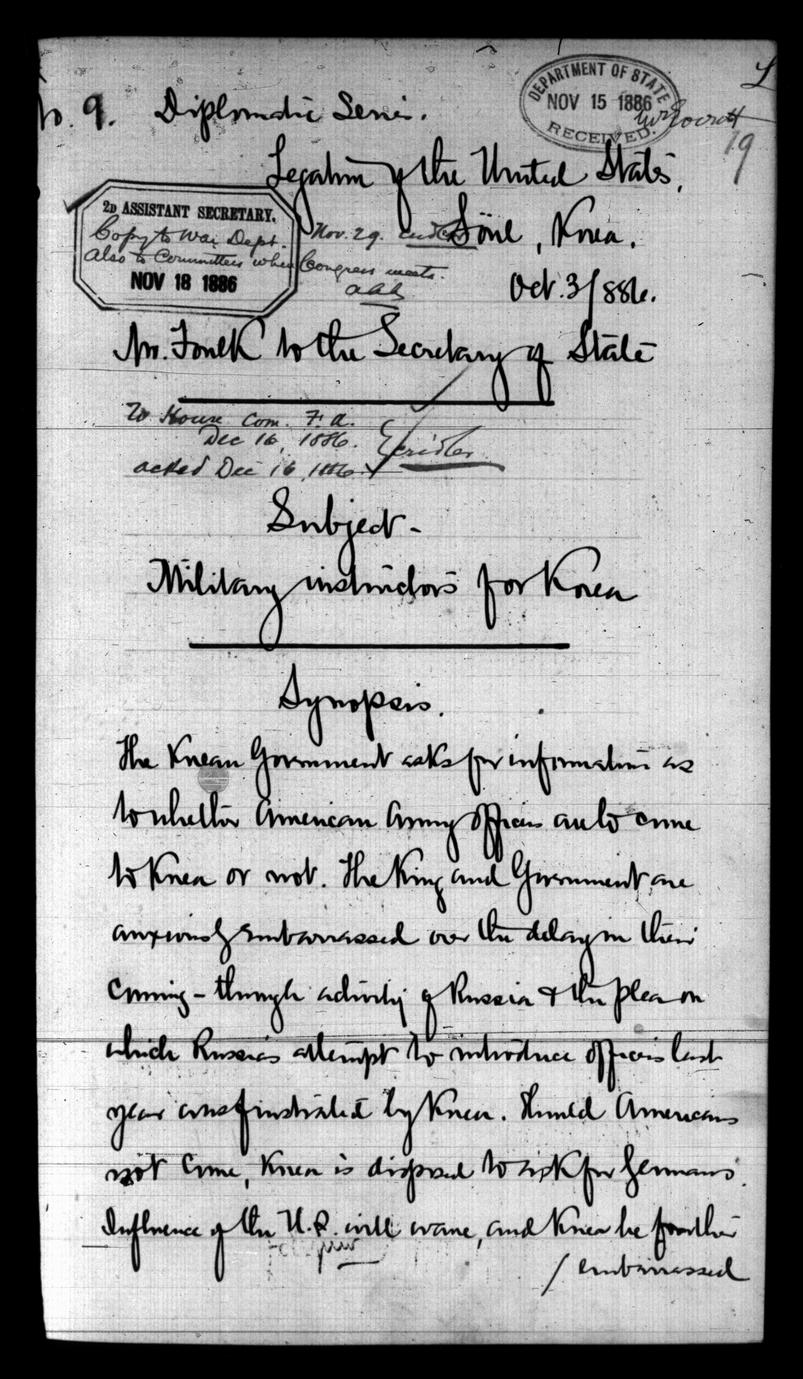 No. 9. Diplomatic Series.
DEPARTMENT OF STATE
NOV 15 1886
RECEIVED.
19
Legation of the United States,
Söul, Korea.
Oct. 3/886.
2D ASSISTANT SECRETARY.
Copy to War Dept. Nov. 29.
also to Committees when Congress meets.
NOV 18 1886
aaa
Mr. Foulk to the Secretary of State
To House Com. F. A.
Dec 16, 1886.
acked Dec 16, 1886
Subject-
Military instructors for Korea
Synopsis.
The Korean Government asks for information as
to whether American Army officers are to come
to Korea or not. The King and Government are
anxiously embarrassed over the delay in their
coming - through activity of Russia & the plea on
which Russia's attempt to introduce officers last
year was frustrated by Korea. Should Americans
not come, Korea is disposed to ask for Germans.
Influence of the U.S. will wane, and Korea be further
/ embarrassed